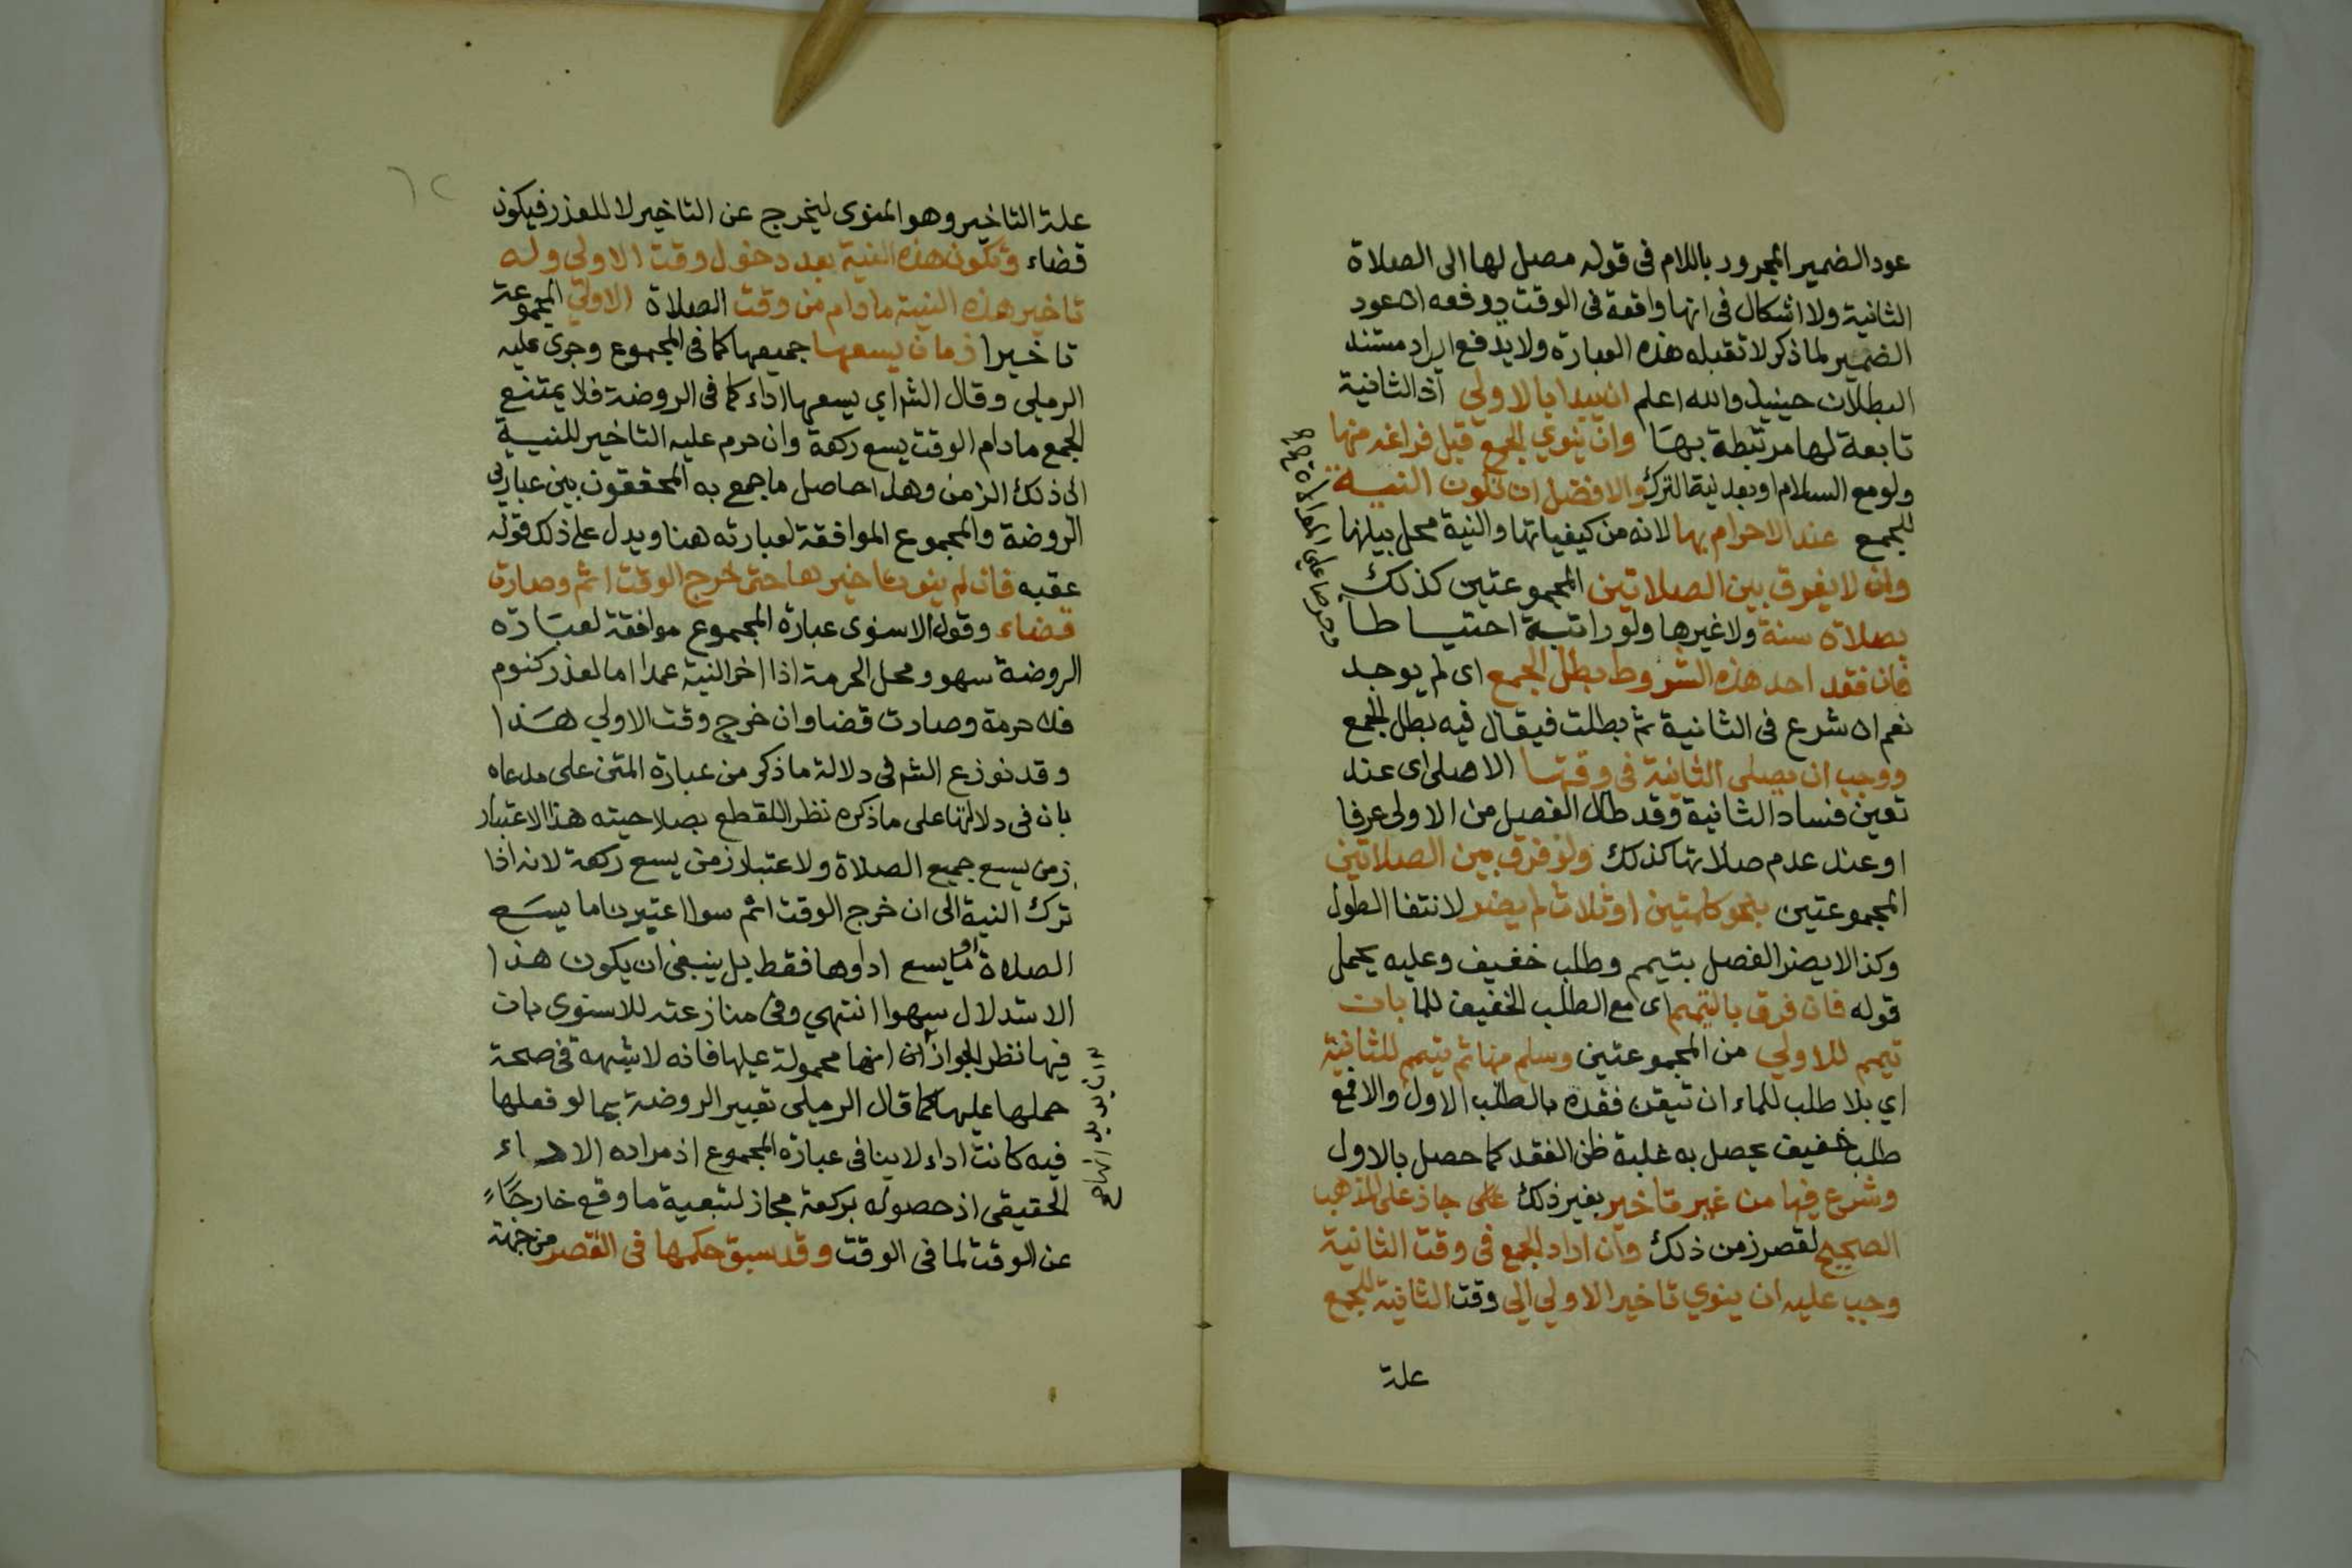 عود الضمير المجرور باللام فى قوله مصل لها الى الصلاة
الثانية ولا اشكال فى انها واقعة فى الوقت يدفعه ان عود
الضمير لما ذكر لا تقبله هذه العبارة ولا يدفع ايراد مستند
البطلان حينيذ والله اعلم ان يبدا بالاولي اذ الثانية
تابعة لها مرتبطة بها وان ينوي الجمع قبل فراغه منها
ولو مع السلام او بعد نية الترك والافضل ان تكون النية
للجمع عند الاحرام بها لانه من كيفياتها والنية محل بيلنها
وان لا يفرق بين الصلاتين المجموعتين كذلك
بصلاة سنة ولا غيرها ولو راتبة احتياطا
فان فقد احد هذه الشروط بطل الجمع اى لم يوجد
نعم ان شرع فى الثانية ثم بطلت فيقال فيه بطل الجمع
ووجب ان يصلى الثانية فى وقتها الاصلى اى عند
تعين فساد الثانية وقد طال الفصل من الاولى عرفا
او عند عدم صلاتها كذلك ولو فرق بين الصلاتين
المجموعتين بنحو كلمتين او ثلاث لم يضر لانتفا الطول
وكذا لا يضر الفصل بتيمم وطلب خفيف وعليه يحمل
قوله فان فرق بالتيمم اى مع الطلب الخفيف للما بان
تيمم للاولي من المجموعتين وسلم منها ثم تيمم للثانية
اي بلا طلب للماء ان تيقن فقده بالطلب الاول والا فمع
طلب خفيف يحصل به غلبة ظن الفقد كما حصل بالاول
وشرع فيها من غير تاخير بغير ذلك جاز على المذهب
الصحيح لقصر زمن ذلك وان اراد الجمع فى وقت الثانية
وجب عليه ان ينوي تاخير الاولي الى وقت الثانية للجمع
علة
علة التاخير وهو المنوى ليخرج عن التاخير لا للعذر فيكون
قضاء وتكون هذه النية بعد دخول وقت الاولي وله
تاخير هذه النية ما دام من وقت الصلاة الاولي المجموعة
تاخيرا زمان يسعها جميعها كما فى المجموع وجرى عليه
الرملى وقال الشر اي يسعها اداء كما فى الروضة فلا يمتنع
الجمع ما دام الوقت يسع ركعة وان حرم عليه التاخير للنية
الى ذلك الزمن وهذا حاصل ما جمع به المحققون بين عبارتى
الروضة والمجموع الموافقة لعبارته هنا ويدل على ذلك قوله
عقبه فان لم ينو تاخيرها حتى خرج الوقت اثم وصارت
قضاء وقول الاسنوى عبارة المجموع موافقة لعبارة
الروضة سهو ومحل الحرمة اذا اخر النية عمدا اما لعذر كنوم
فلا حرمة وصارت قضا وان خرج وقت الاولي هذا
وقد نوزع الشر فى دلالة ما ذكر من عبارة المتن على مدعاه
بان فى دلالتها على ما ذكره نظرا للقطع بصلاحيته هذا الاعتبار
زمن يسع جميع الصلاة ولاعتبار زمن يسع ركعة لانه اذا
ترك النية الى ان خرج الوقت اثم سوا اعتبرنا ما يسع
الصلاة او ما يسع اداوها فقط بل ينبغى ان يكون هذا
الاستدلال سهوا انتهي وفى منازعته للاسنوى بان
فيها نظر الجواز ان انها محمولة عليها فانه لا شبهة فى صحة
حملها عليها كما قال الرملى تعبير الروضة بما لو فعلها
فيه كانت اداء لا ينافى عبارة المجموع اذ مراده الاداء
الحقيقى اذ حصوله بركعة مجاز لتبعية ما وقع خارجا
عن الوقت لما فى الوقت وقد سبق حكمها فى القصر من جهة